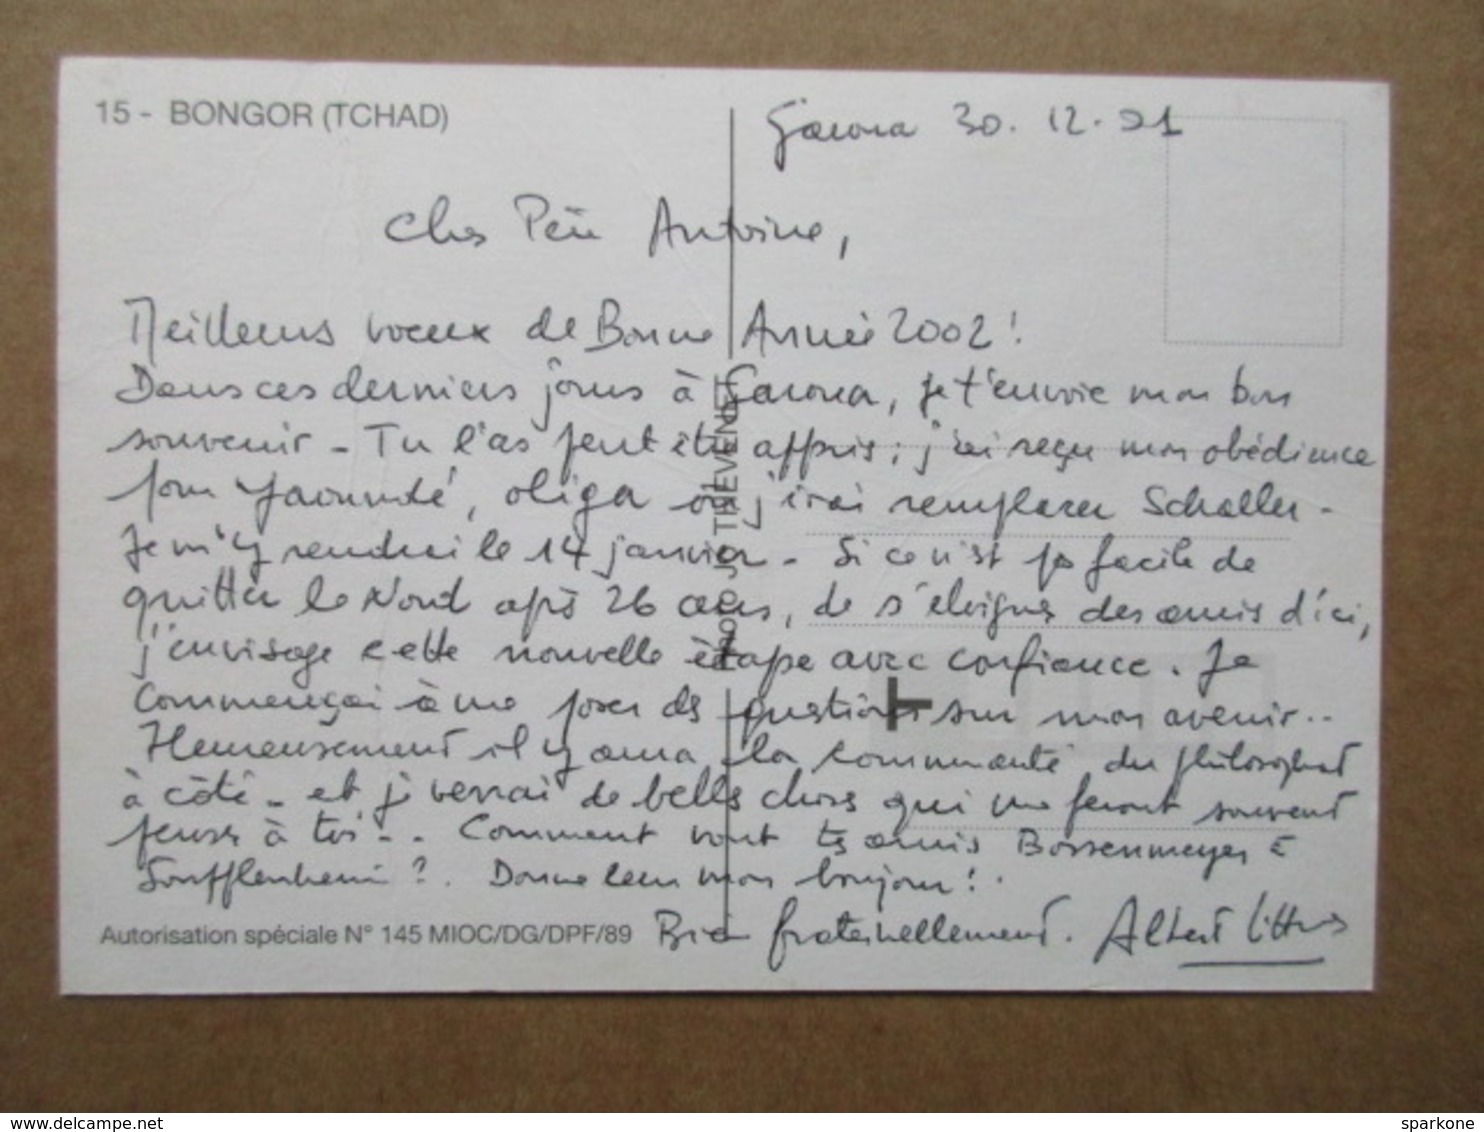 15 - BONGOR (TCHAD)
Garoua 30. 12. 01
Cher Père Antoine,
Meilleurs voeux de Bonne Année 2002!
Dans ces derniers jours à Garoua, je t'envoie mon bon
souvenir - Tu l'as peut être appris; j'ai reçu mon obédience
pour Yaoundé, oliga où j'irai remplacer Schaller -
Je m'y rendrai le 14 janvier - Si ce n'est pas facile de
quitter le Nord après 26 ans, de s'éloigner des amis d'ici,
j'envisage cette nouvelle étape avec confiance. Je
commençai à me poser des questions sur mon avenir..
Heureusement il y aura la communauté du philosophat
à côté - et je verrai de belles choses qui me feront souvent
penser à toi - . Comment vont tes amis Bossenmeyer à
Soufflenheim?. Donne leur mon bonjour!.
Bien fraternellement. Albert
Autorisation spéciale N° 145 MIOC/DG/DPF/89
T
www.delcampe.net
sparkone